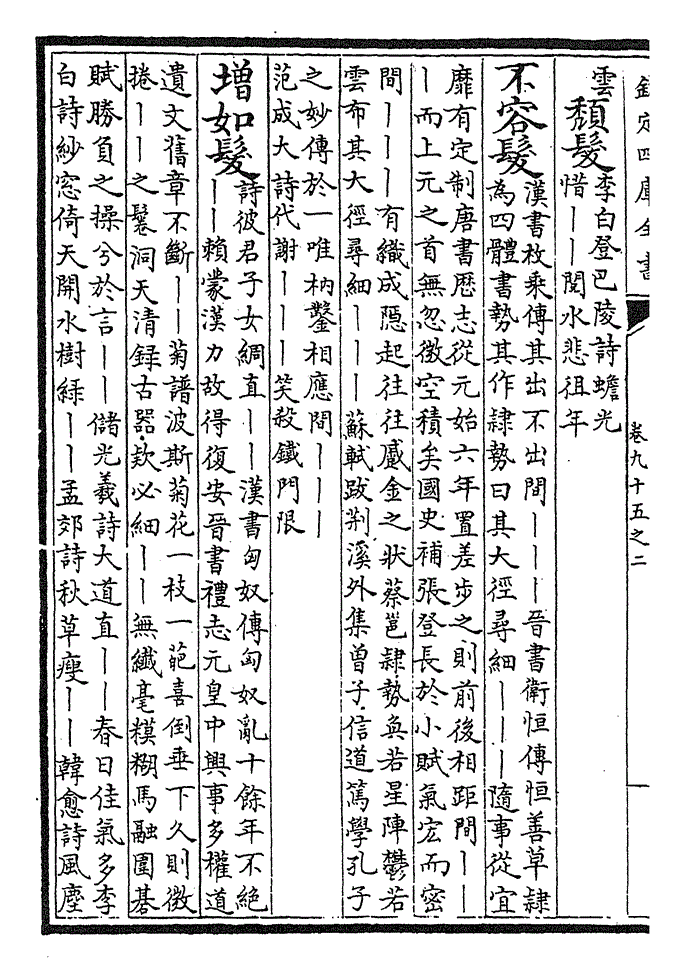 欽定四庫全書
卷九十五之二
雲
頽髮
李白登巴陵詩蟾光
惜丨丨閱水悲徂年
不容髮
漢書枚乘傳其出不出間丨丨丨晉書衛恒傳恒善草隷
為四體書勢其作隷勢曰其大徑尋細丨丨丨隨事從宜
靡有定制唐書歴志從元始六年置差步之則前後相距間丨丨
丨而上元之首無忽微空積矣國史補張登長於小賦氣宏而密
間丨丨丨有織成隠起往往蹙金之狀蔡邕隷勢奐若星陣鬱若
雲布其大徑尋細丨丨丨蘇軾跋荆溪外集曽子信道篤學孔子
之妙傳於一唯枘鑿相應間丨丨丨
范成大詩代謝丨丨丨笑殺鐵門限
增如髮
詩彼君子女綢直丨丨漢書匈奴傳匈奴亂十餘年不絶
丨丨賴蒙漢力故得復安晉書禮志元皇中興事多權道
遺文舊章不斷丨丨菊譜波斯菊花一枝一葩喜倒垂下久則微
捲丨丨之鬈洞天清録古器欵必細丨丨無纎毫糢糊馬融圍碁
賦勝負之操兮於言丨丨儲光羲詩大道直丨丨春日佳氣多李
白詩紗窓倚天開水樹緑丨丨孟郊詩秋草瘦丨丨韓愈詩風塵